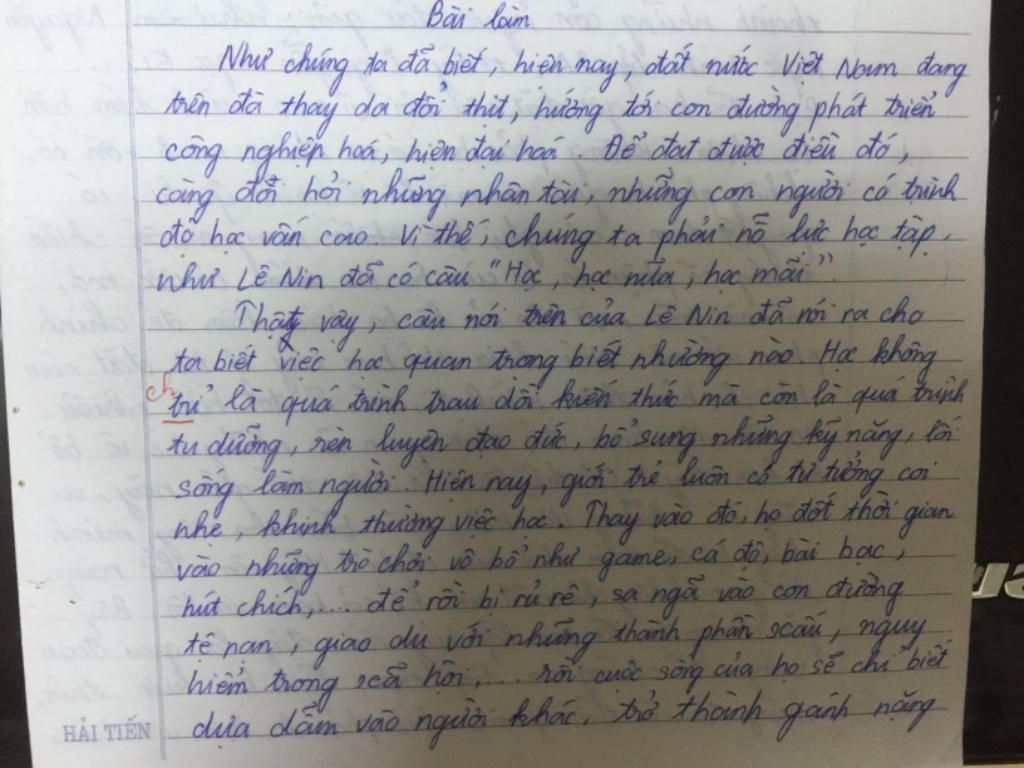 Bài làm
Như chúng ta đã biết, hiện nay, đất nước Việt Nam đang
trên đà thay da đổi thịt, hướng tới con đường phát triển
công nghiệp hoá, hiện đại hoá. Để đạt được điều đó,
càng đòi hỏi những nhân tài, những con người có trình
độ học vấn cao. Vì thế, chúng ta phải nỗ lực học tập,
như Lê Nin đã có câu "Học, học nữa, học mãi".
Thật vậy, câu nói trên của Lê Nin đã nói ra cho
ta biết việc học quan trọng biết nhường nào. Học không
ch
trỉ là quá trình trau dồi kiến thức mà còn là quá trình
tu dưỡng, rèn luyện đạo đức, bổ sung những kỹ năng, lối
sống làm người. Hiện nay, giới trẻ luôn có tư tưởng coi
nhẹ, khinh thường việc học. Thay vào đó, họ đốt thời gian
vào những trò chơi vô bổ như game, cá độ, bài bạc,
hút chích,... để rồi bị rủ rê, sa ngã vào con đường
tệ nạn, giao du với những thành phần xấu, nguy
hiểm trong xã hội,... rồi cuộc sống của họ sẽ chỉ biết
dựa dẫm vào người khác, trở thành gánh nặng
HẢI TIẾN